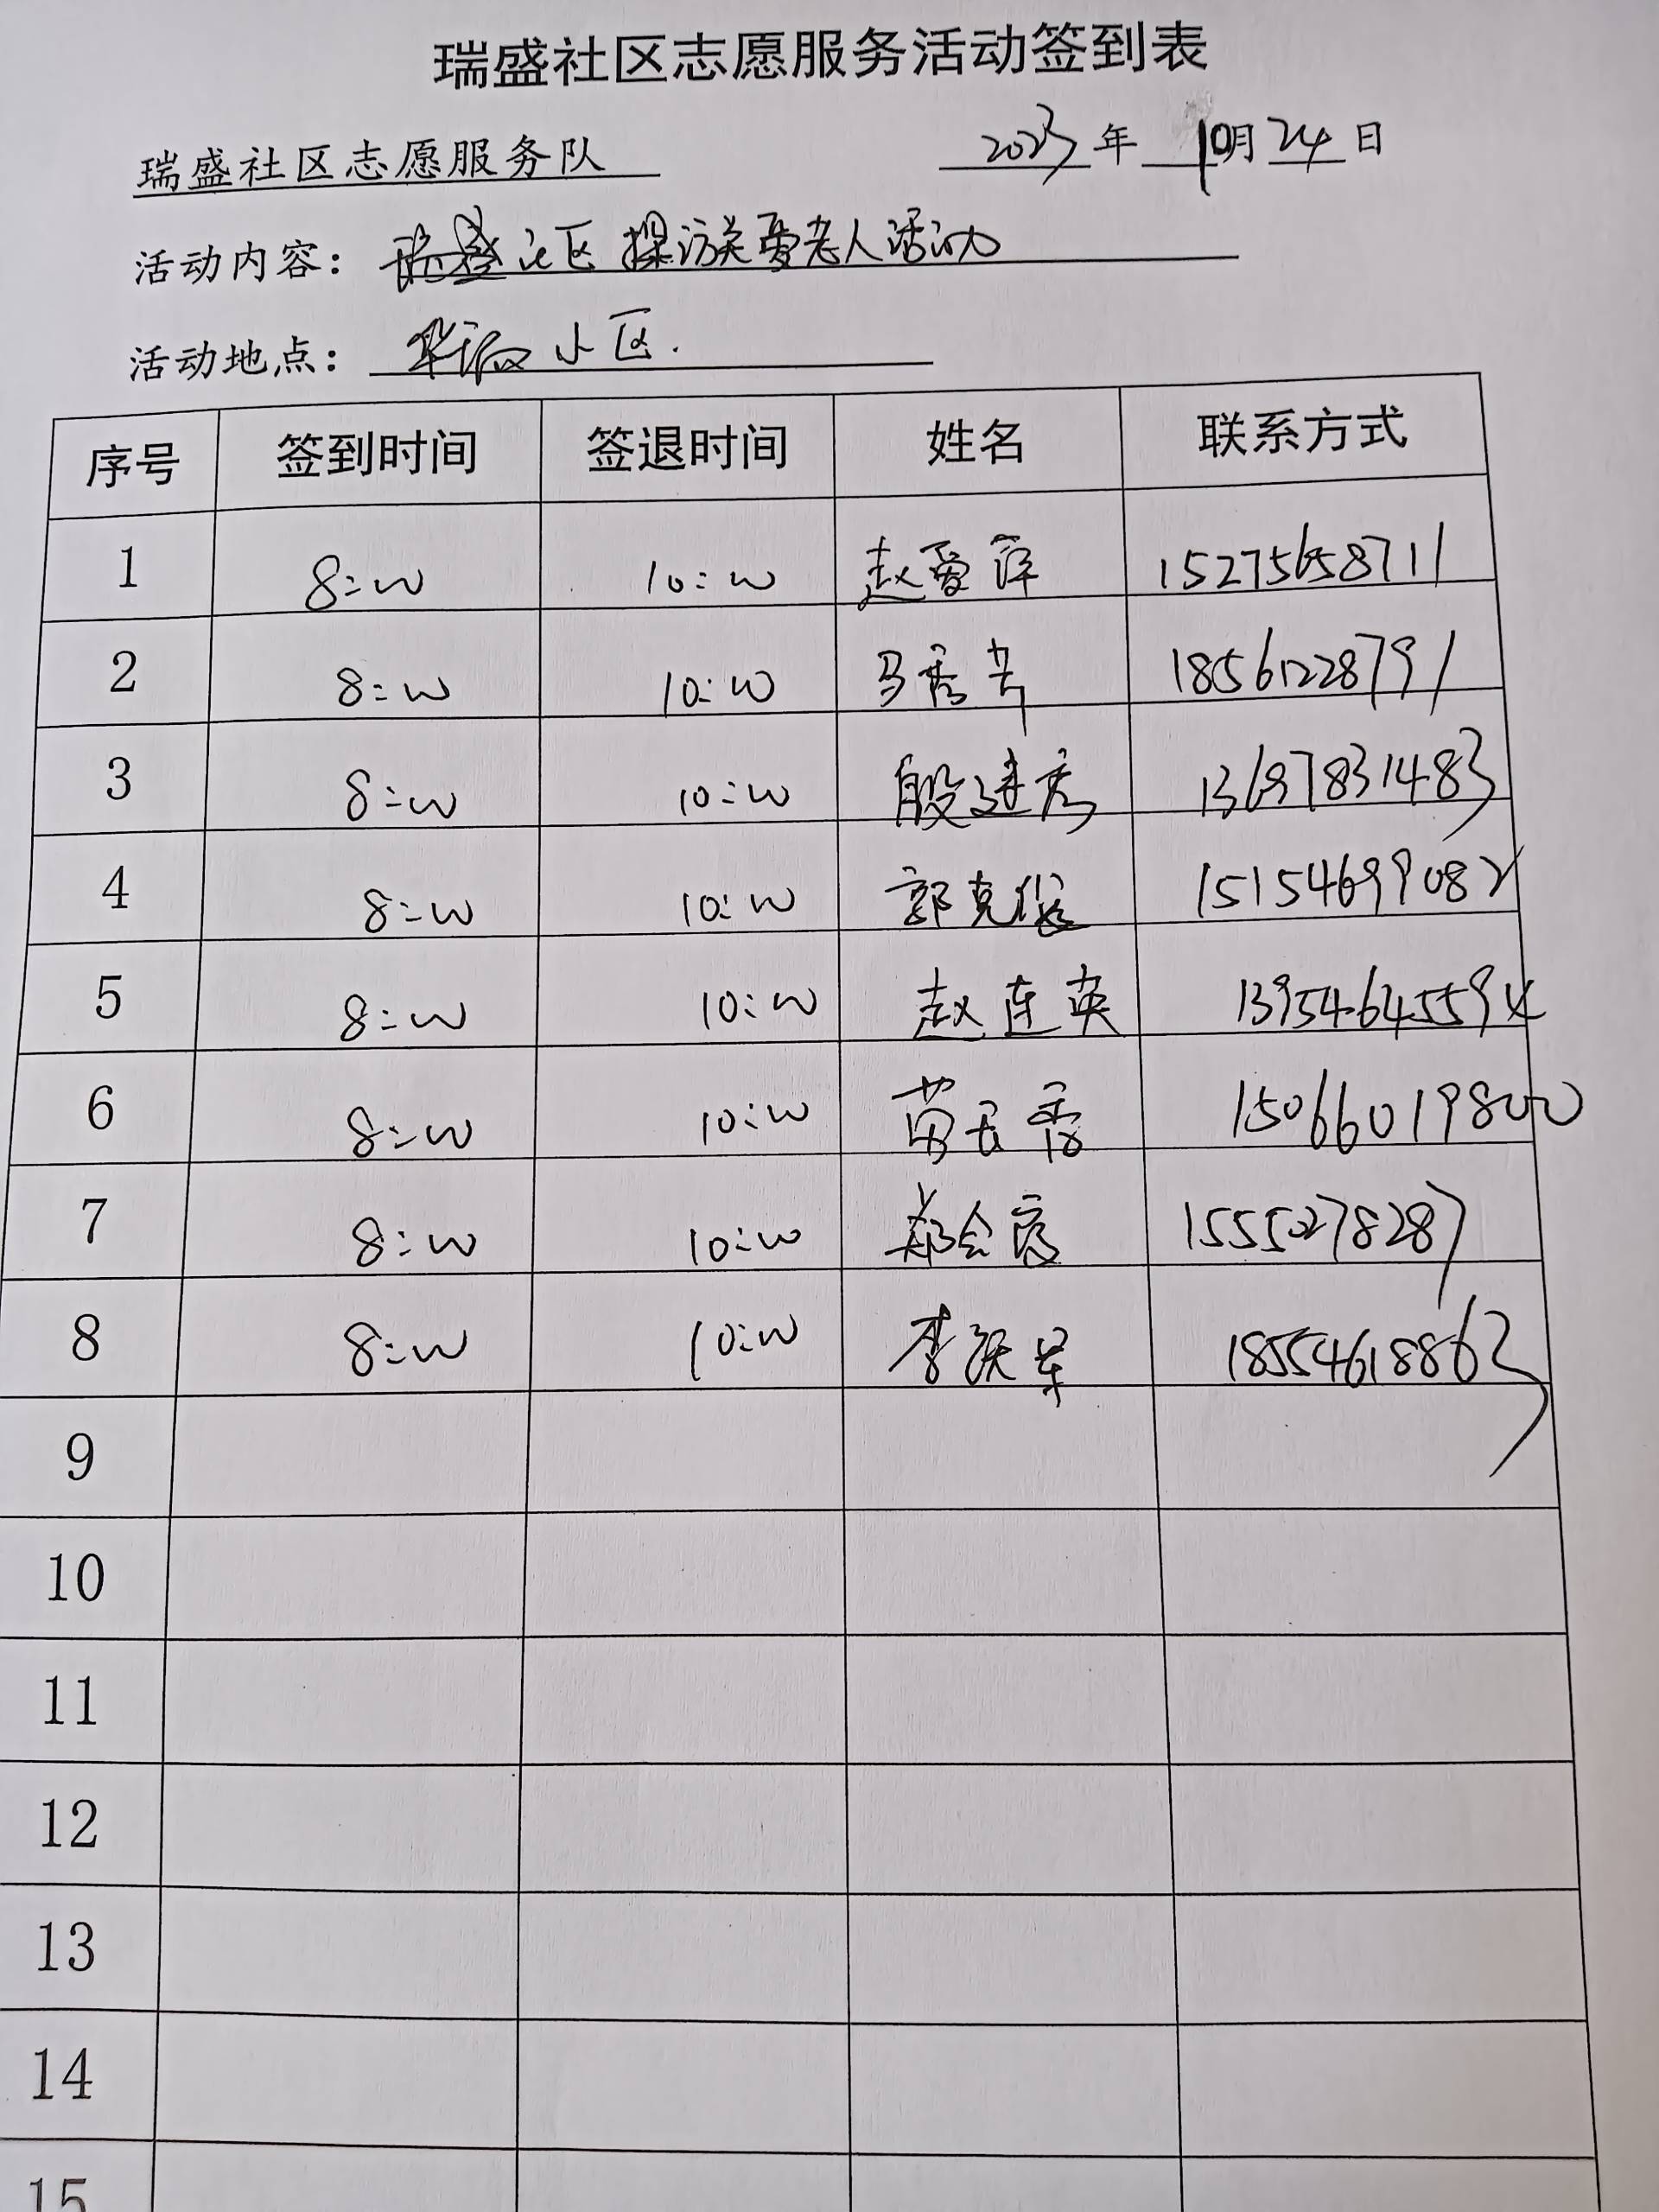 瑞盛社区志愿服务活动签到表
瑞盛社区志愿服务队 2023年 10月 24日
活动内容: 瑞盛社区探访关爱老人活动
活动地点: 小区.
序号 签到时间 签退时间 姓名 联系方式
1 8:00 10:00 赵爱萍 15275658711
2 8:00 10:00 马秀芳 18561228791
3 8:00 10:00 殷建秀 13697831483
4 8:00 10:00 郭克俊 15154699082
5 8:00 10:00 赵连英 13954645594
6 8:00 10:00 苗玉香 15066019800
7 8:00 10:00 郑会霞 15550278287
8 8:00 10:00 李跃军 18554618863
9
10
11
12
13
14
15